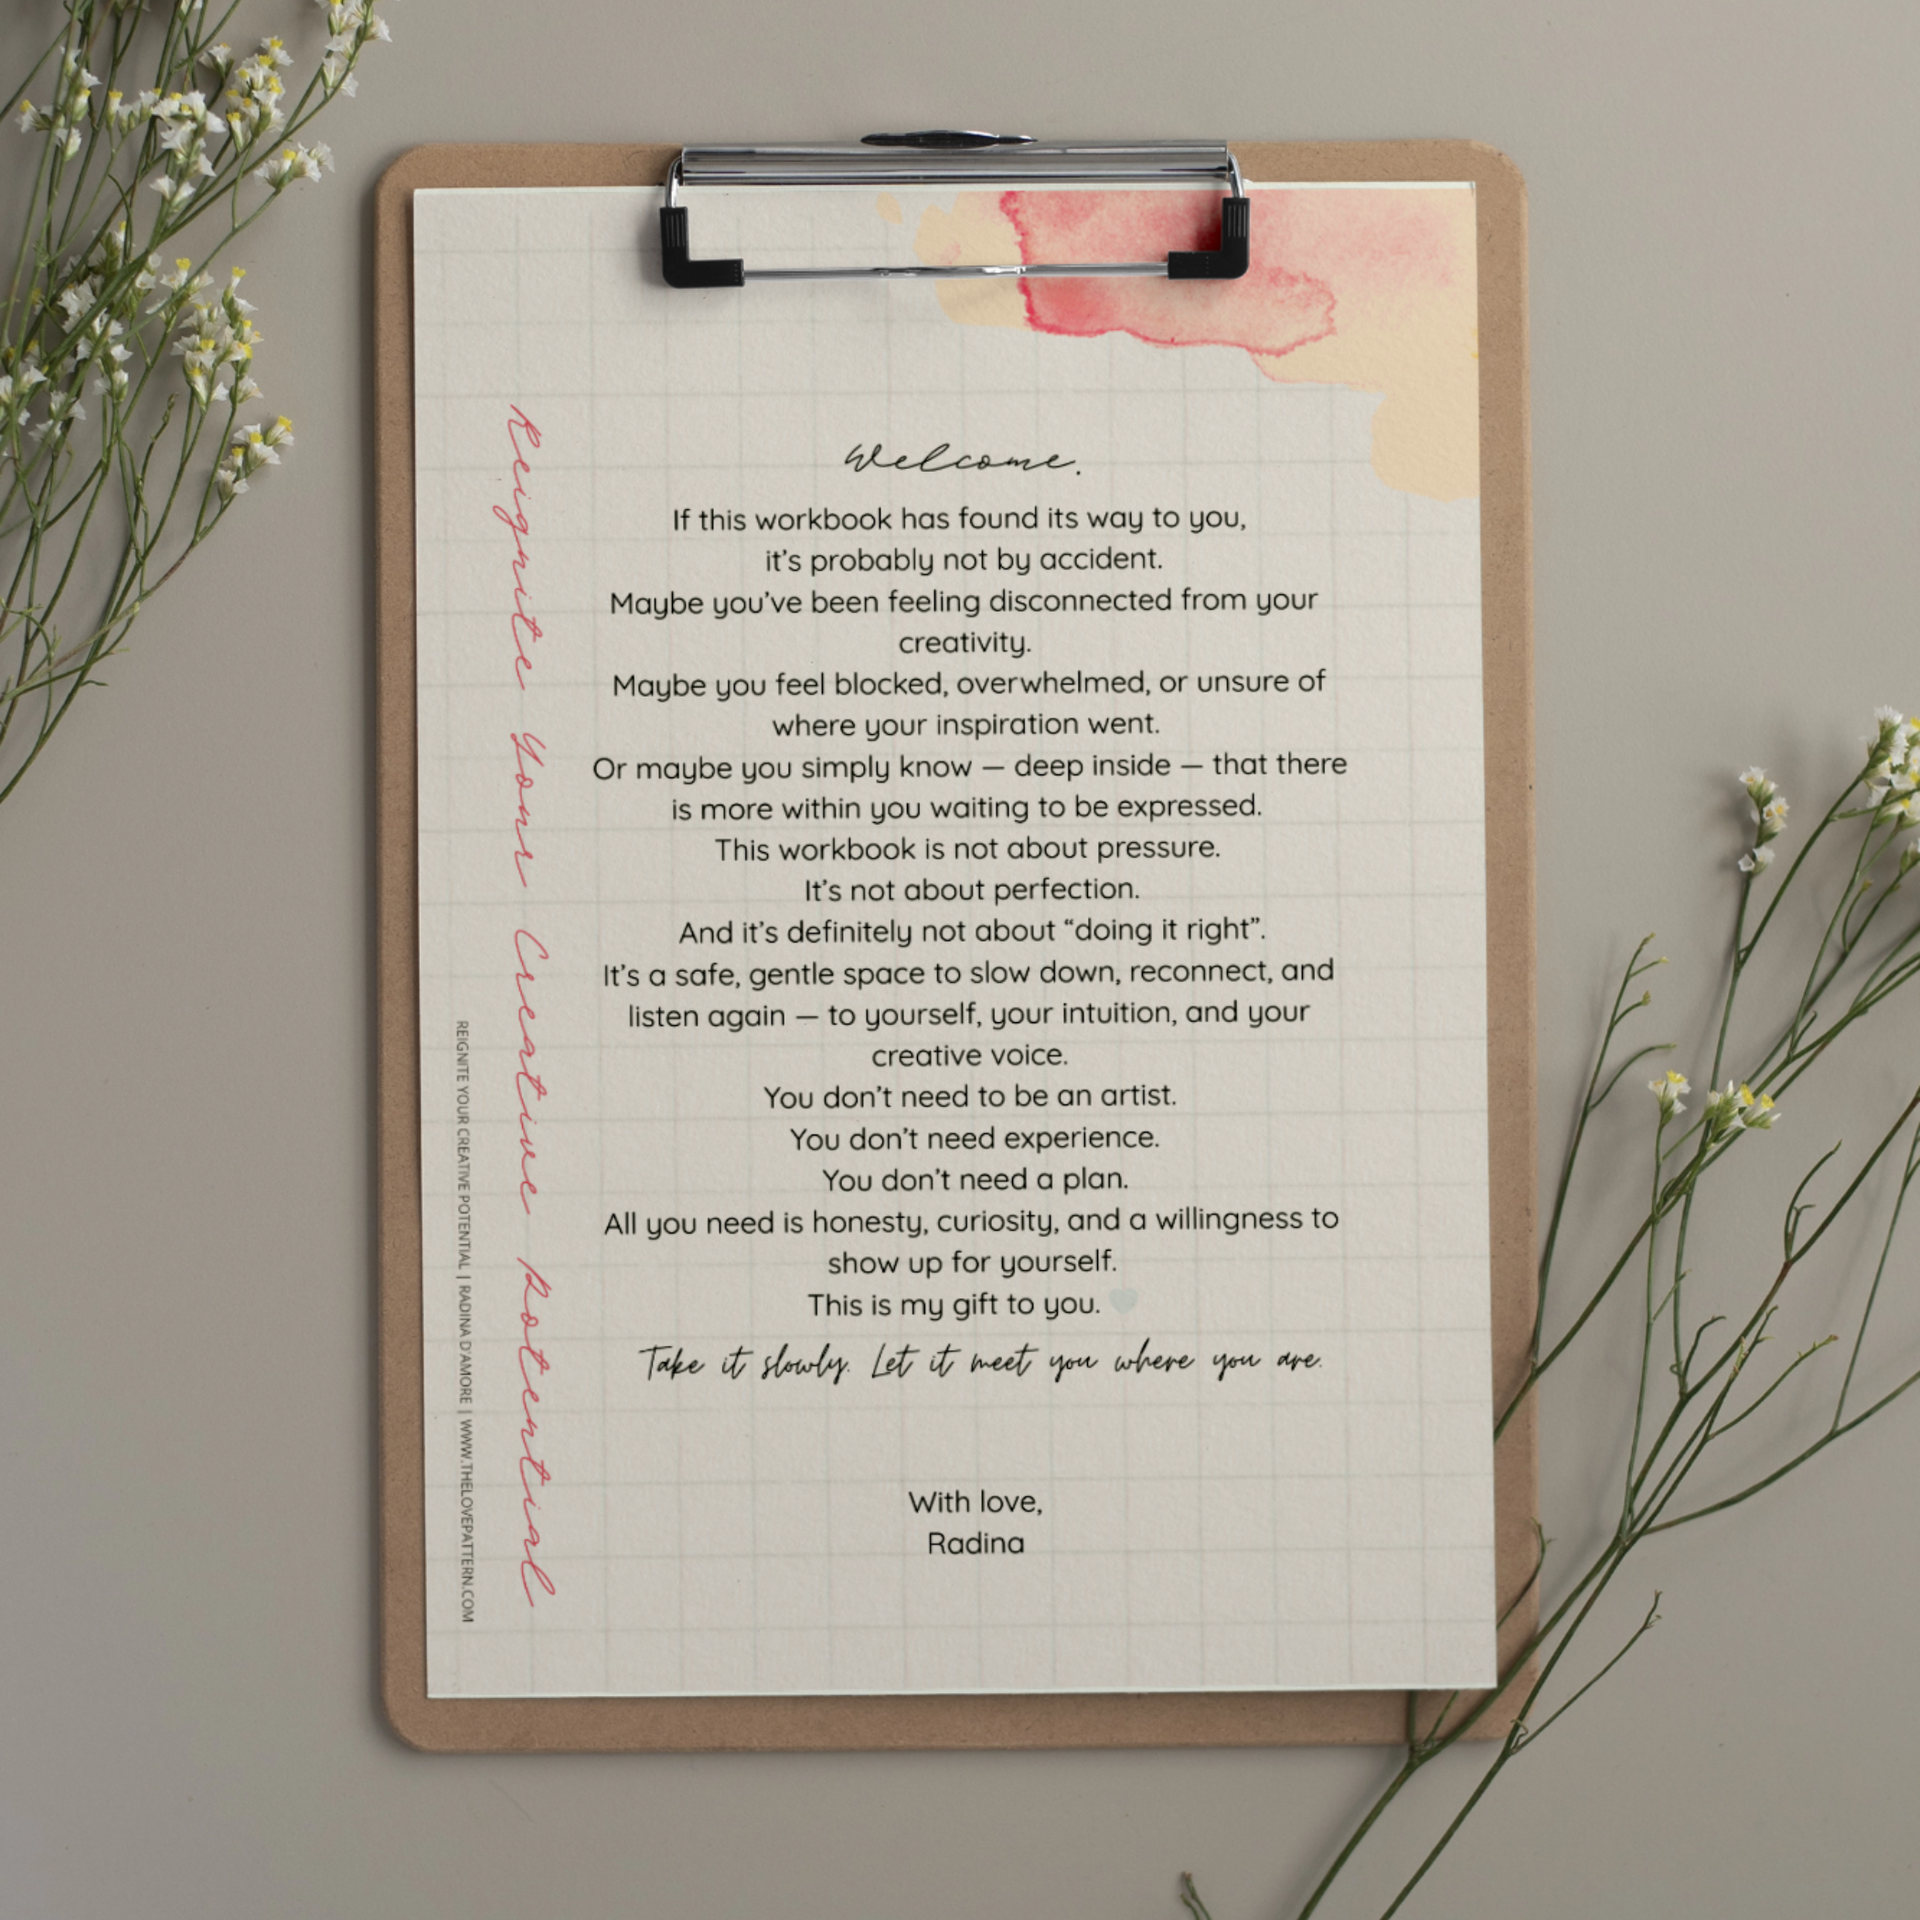 Welcome.
If this workbook has found its way to you,
it's probably not by accident.
Maybe you've been feeling disconnected from your
creativity.
Maybe you feel blocked, overwhelmed, or unsure of
where your inspiration went.
Or maybe you simply know — deep inside — that there
is more within you waiting to be expressed.
This workbook is not about pressure.
It's not about perfection.
And it's definitely not about “doing it right”.
It's a safe, gentle space to slow down, reconnect, and
listen again — to yourself, your intuition, and your
creative voice.
You don't need to be an artist.
You don't need experience.
You don't need a plan.
All you need is honesty, curiosity, and a willingness to
show up for yourself.
This is my gift to you.
Take it slowly. Let it meet you where you are.
With love,
Radina
Reignite Your Creative Potential
REIGNITE YOUR CREATIVE POTENTIAL | RADINA D'AMORE | WWW.THELOVEPATTERN.COM